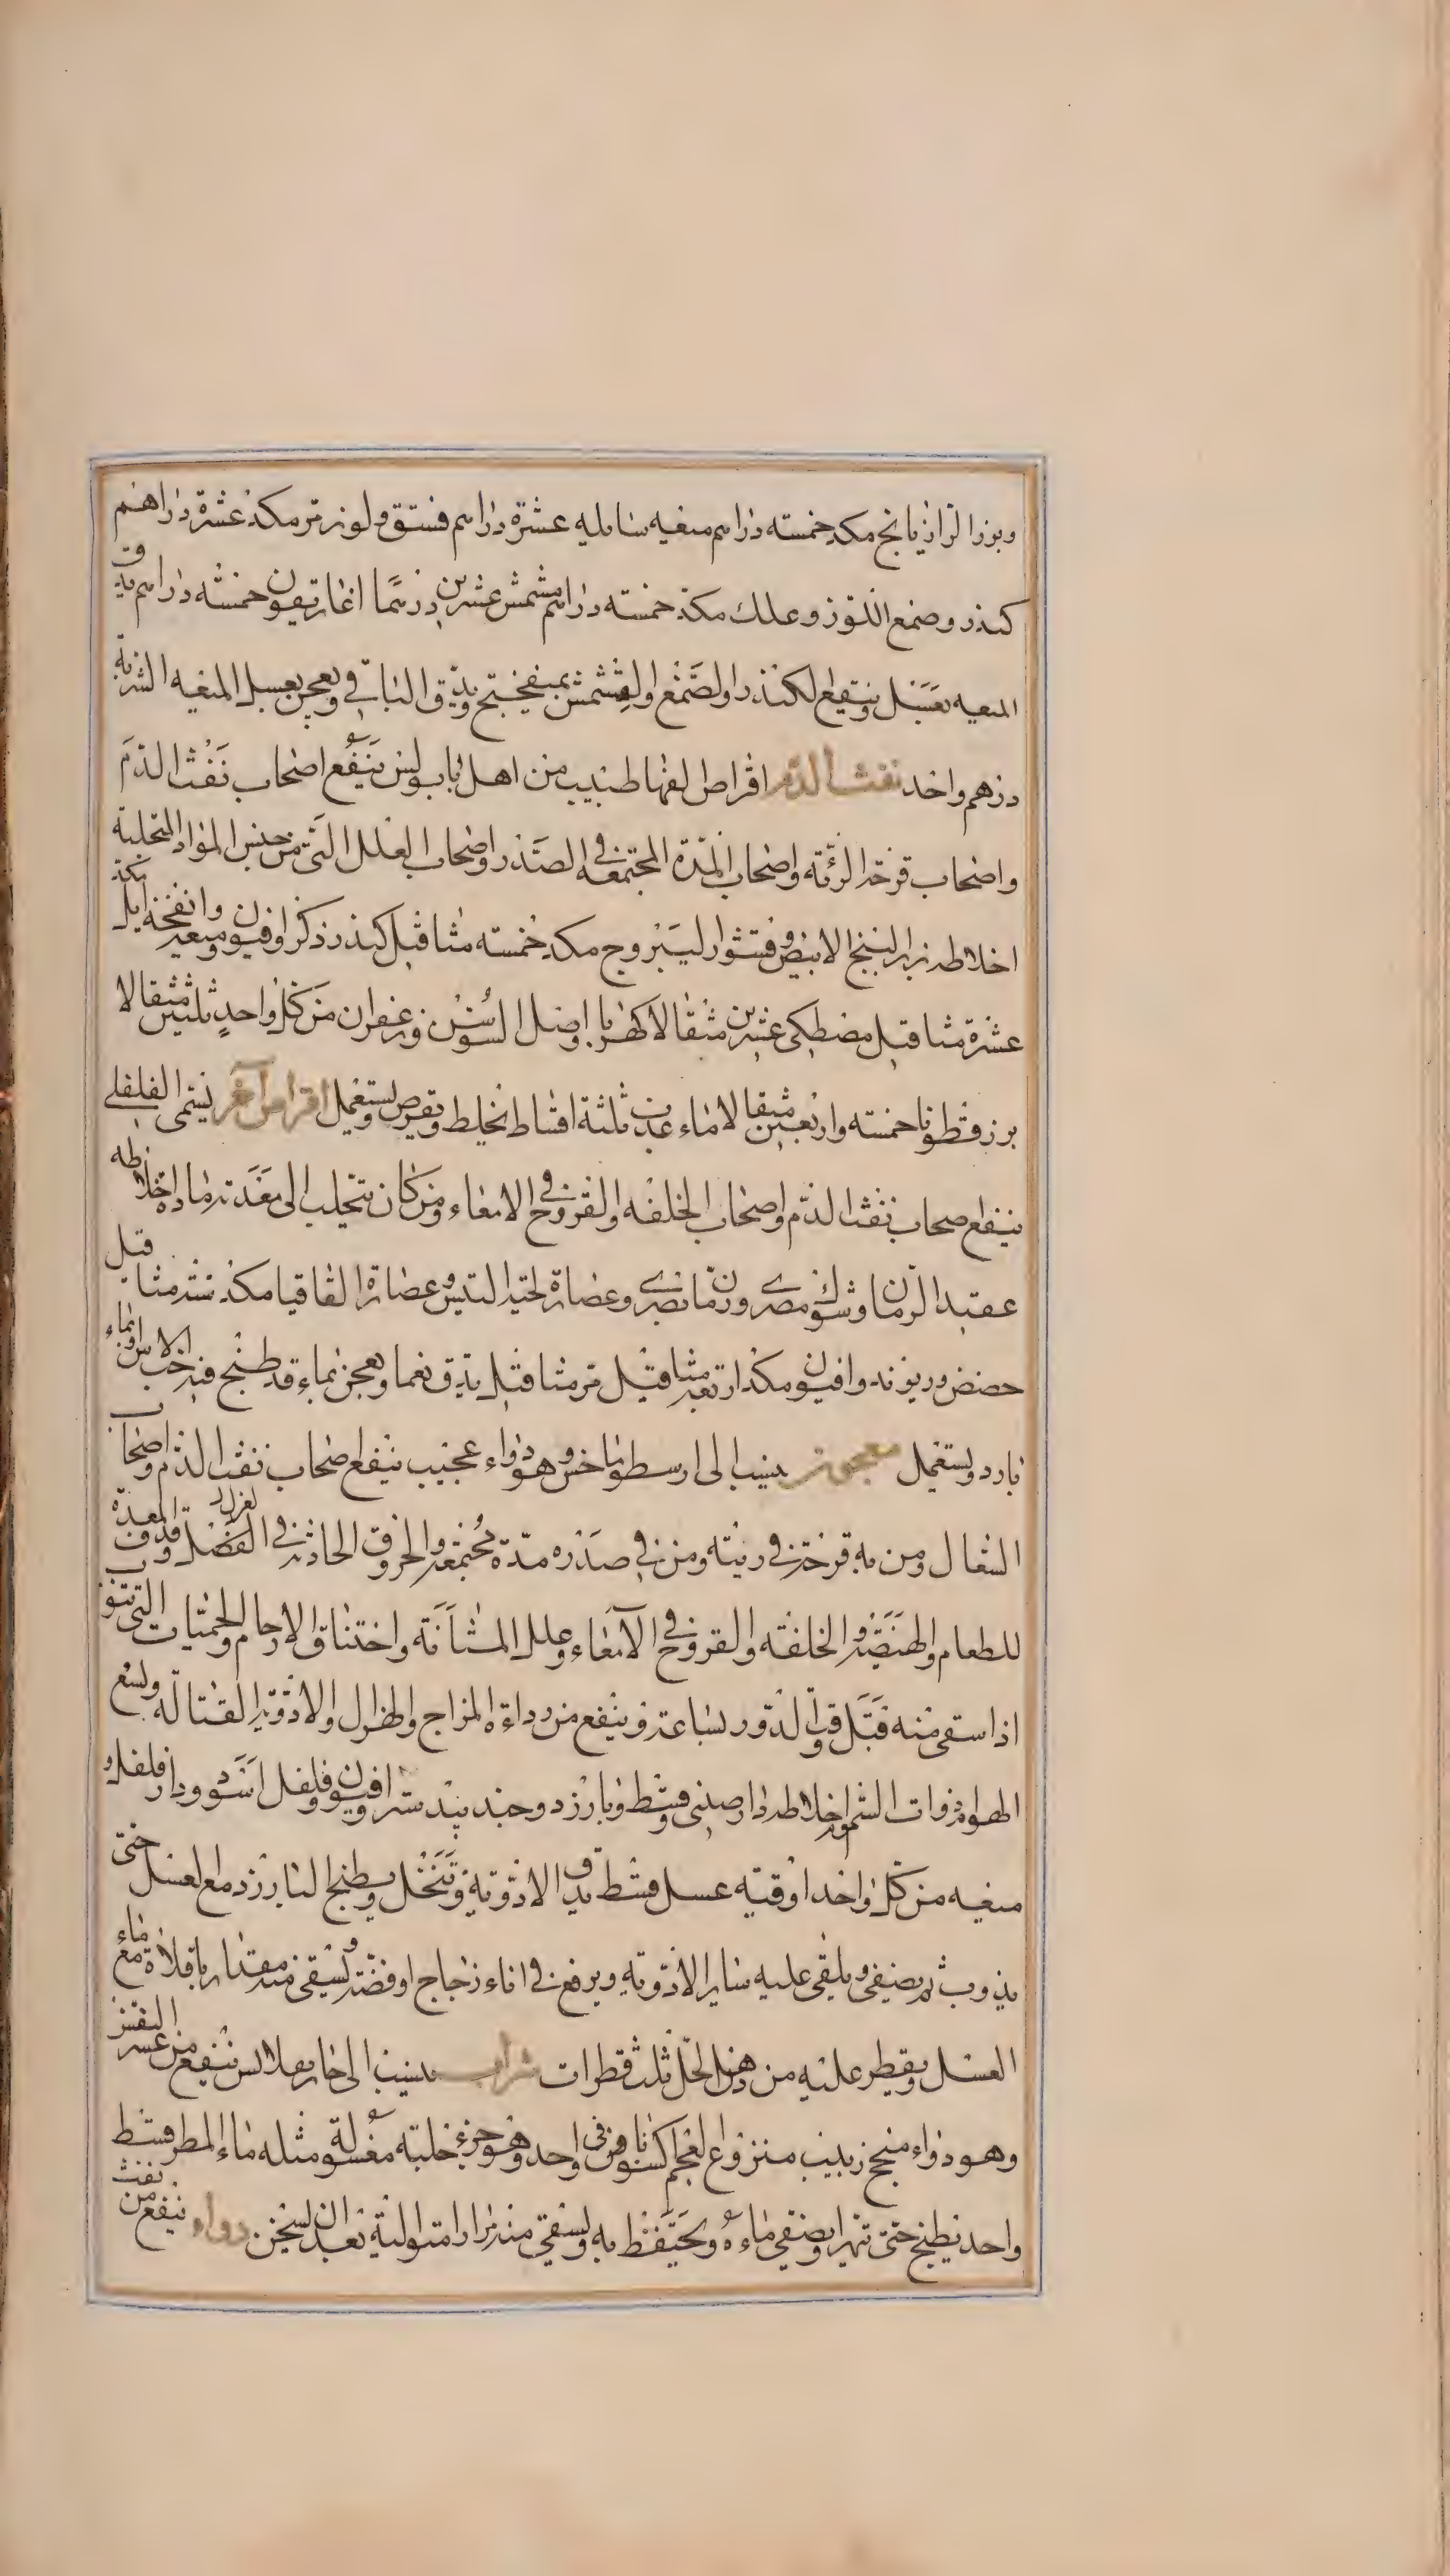 وبزر الرازيانج مكد خمسة دراهم ميعه سايله عشرة دراهم فستق ولوز مر مكد عشرة دراهم
كندر وصمغ اللوز وعلك مكد خمسه دراهم مشمش عشرين درهما اغاريقون خمسه دراهم يدق
الميعه بعسل وينقع الكندر والصمغ والمشمش بميفختج ويدق الباقي ويعجن بعسل الميعه الشربة
درهم واحد نفث الدم اقراص الفها طبيب من اهل نابولس ينفع اصحاب نفث الدم
واصحاب قرحة الرئة واصحاب المدة المجتمعه في الصدر واصحاب العلل التي من جنس المواد المتحلبة
اخلاطه بزر البنج الابيض وقشور اليبروج مكد خمسه مثاقيل كندر ذكر وافيون وميعه وانفحة ايل مكد
عشرة مثاقيل مصطكى عشرين مثقالا كهربا واصل السوسن وزعفران من كل واحد ثلثين مثقالا
بزر قطونا خمسه واربعين مثقالا ماء عذب ثلثة اقساط يخلط ويقرص ويستعمل اقراص آخر يسمى الفلفلى
ينفع اصحاب نفث الدم واصحاب الخلفه والقروح في الامعاء ومن كان يتحلب الى معدته مادة اخلاطه
عقيد الرمان وشوك مصرى ورمان مصرى وعصارة لحية التيس وعصارة القاقيا مكد ستة مثاقيل
حضض وريوند وافيون مكد اربعة مثاقيل مر مثاقيل يدق نعما ويعجن بماء قد طبخ فيه حب الاس وبماء
بارد ويستعمل معجون ينسب الى ارسطوماخس وهو دواء عجيب ينفع اصحاب نفث الدم واصحاب
السعال ومن به قرحة في رئته ومن في صدره مدة مجتمعه والحروق الحادثة في العضل وقذف المعدة
للطعام والهيضة والخلفه والقروح في الامعاء وعلل المثانة واختناق الارحام والحميات التي تنوب
اذا سقي منه قبل وقت الدور بساعة وينفع من رداءة المزاج والهزال والادوية القتاله ولسع
الهوام ذوات السموم اخلاطه دارصيني وقسط وبارزد وجندبيدستر وافيون وفلفل اسود ودار فلفل و
ميعه من كل واحد اوقيه عسل قسط تدق الادويه وتنخل ويطبخ البارزد مع العسل حتى
يذوب ثم يصفى ويلقى عليه ساير الادويه ويرفع في اناء زجاج او فضه ويسقى منه مقدار باقلاة مع ماء
العسل ويقطر عليه من دهن الحل ثلث قطرات شراب ينسب الى ينفع من عسر النفس
وهو دواء منجح زبيب منزوع العجم وهو جزء حلبه مغسولة مثله ماء المطر قسط
واحد يطبخ حتى تهرا ويصفى ماءه ويحتفظ به ويسقى منه مرارا متوالية بعد ان يسخن دواء ينفع من نفث